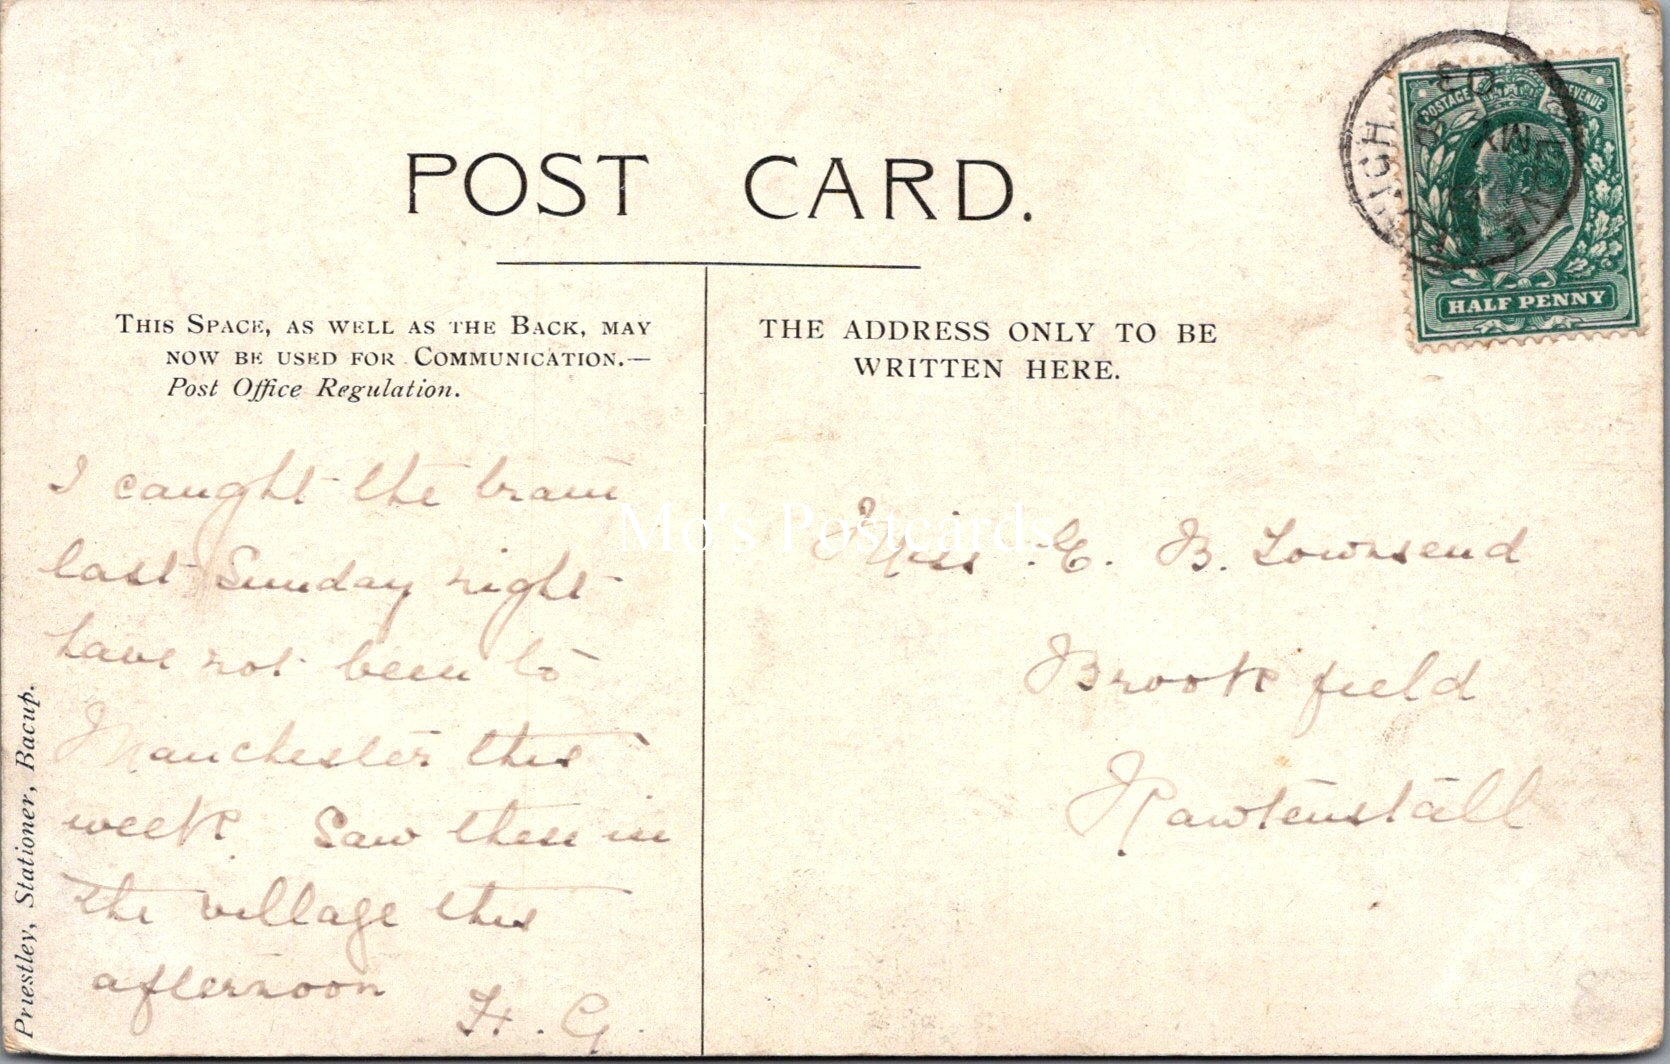 POST CARD.
THIS SPACE, AS WELL AS THE BACK, MAY
NOW BE USED FOR COMMUNICATION.—
Post Office Regulation.
I caught the train
last Sunday night
have not been to
Manchester this
week. Saw them in
the village this
afternoon
H. G.
Priestley, Stationer, Bacup.
THE ADDRESS ONLY TO BE
WRITTEN HERE.
Miss E. B. Townsend
Brookfield
Rawtenstall
POSTAGE REVENUE
HALF PENNY
MY
03
Mo's Postcards